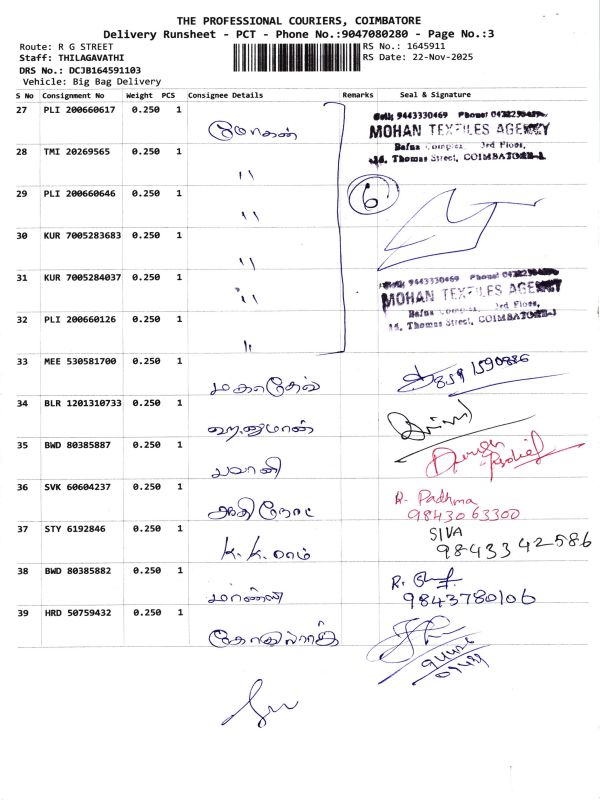 THE PROFESSIONAL COURIERS, COIMBATORE
Delivery Runsheet - PCT - Phone No.:9047080280 - Page No.:3
Route: R G STREET
RS No.: 1645911
Staff: THILAGAVATHI
RS Date: 22-Nov-2025
DRS No.: DCJB164591103
Vehicle: Big Bag Delivery
S No Consignment No Weight PCS Consignee Details Remarks Seal & Signature
27 PLI 200660617 0.250 1 மோகன்
Cell: 9443330469 Phone:
MOHAN TEXTILES AGENCY
Bafna Complex, 3rd Floor,
Thomas Street, COIMBATORE-1
28 TMI 20269565 0.250 1 "
29 PLI 200660646 0.250 1 "
6
30 KUR 7005283683 0.250 1 "
31 KUR 7005284037 0.250 1 "
9443330469 Phone:
MOHAN TEXTILES AGENCY
Bafna Complex, 3rd Floor,
14, Thomas Street, COIMBATORE-1
32 PLI 200660126 0.250 1 "
33 MEE 530581700 0.250 1 மகாதேவ்
34 BLR 1201310733 0.250 1 ஹனுமான்
35 BWD 80385887 0.250 1 பவானி
36 SVK 60604237 0.250 1 R. Padhma
9843063300
37 STY 6192846 0.250 1 K.K.ராம் SIVA
9843342586
38 BWD 80385882 0.250 1 R.
9843780106
39 HRD 50759432 0.250 1